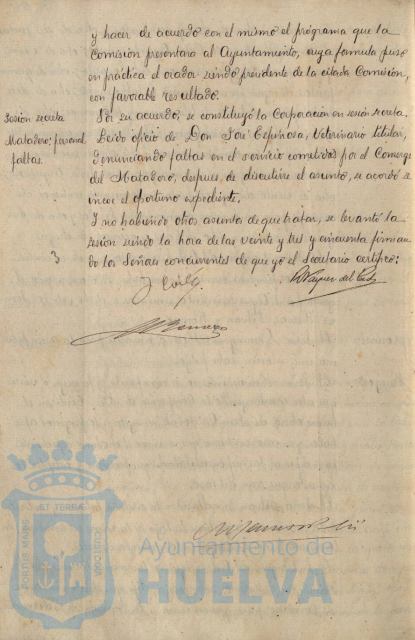 y hacer de acuerdo con el mismo el programa que la
Comisión presentara al Ayuntamiento, cuya formula puso
en práctica el orador siendo presidente de la citada Comisión,
con favorable resultado.
Sesión secreta
Matadero: personal
faltas.
Por su acuerdo, se constituyó la Corporación en sesión secreta.
Leido oficio de Don José Espinosa, Veterinario titular,
denunciando faltas en el servicio cometidas por el Conserge
del Matadero, despues, de discutirse el asunto, se acordó se
incoe el oportuno expediente.
Y no habiendo otros asuntos de que tratar, se levantó la
sesión siendo la hora de las veinte y tres y cincuenta firman
do los Señores concurrentes de que yo el Secretario certifico:
3
PORTUS MARIS ET TERRÆ CUSTODIA
Ayuntamiento de
HUELVA